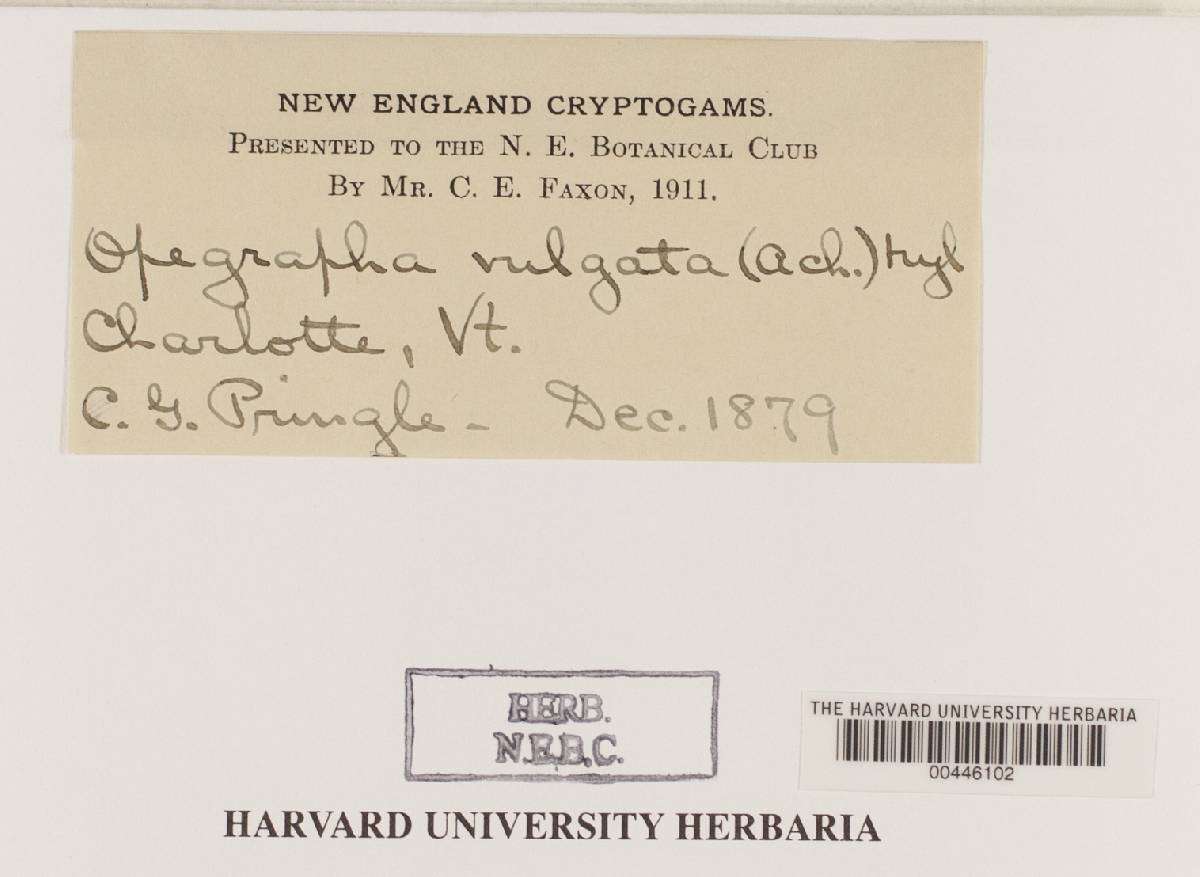 NEW ENGLAND CRYPTOGAMS.
PRESENTED TO THE N. E. BOTANICAL CLUB
BY MR. C. E. FAXON, 1911.
Opegrapha vulgata (Ach.) Nyl
Charlotte, Vt.
C. G. Pringle - Dec. 1879
HERB.
N.E.B.C.
THE HARVARD UNIVERSITY HERBARIA
00446102
HARVARD UNIVERSITY HERBARIA